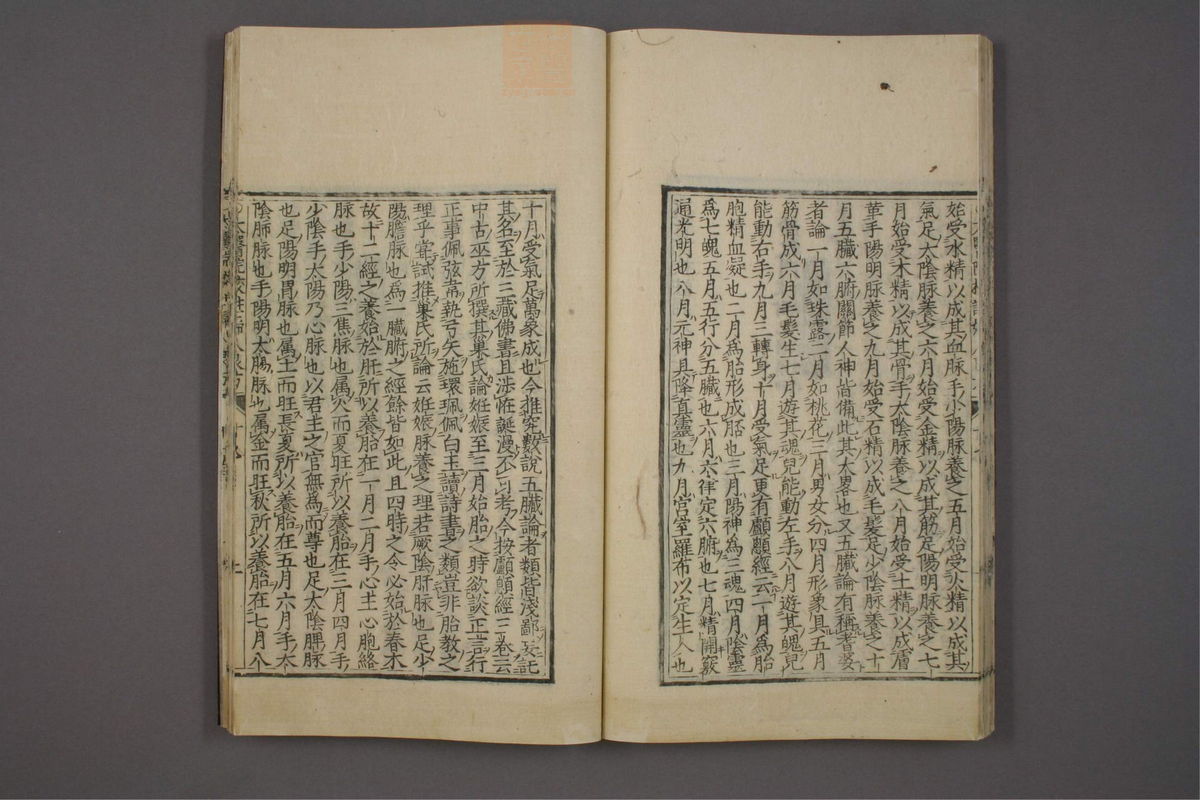 始受水精以成其血脉手少陽脉養之五月始受火精以成其
氣足太陰脉養之六月始受金精以成其筋足陽明脉養之七
月始受木精以成其骨手太陰脉養之八月始受土精以成膚
革手陽明脉養之九月始受石精以成毛髮足少陰脉養之十
月五臟六腑關節人神皆備此其大畧也又五臟論有稱耆婆
者論一月如珠露二月如桃花三月男女分四月形象具五月
筋骨成六月毛髮生七月遊其魂兒能動左手八月遊其魄兒
能動右手九月三轉身十月受氣足更有顱顖經云一月為胎
胞精血凝也二月為胎形成胚也三月陽神為三魂四月陰靈
為七魄五月五行分五臟也六月六律定六腑也七月精開竅
通光明也八月元神具降真靈也九月宮室羅布以定生人也
十月受氣足萬象成也今推究數說五臟論者類皆淺鄙妄託
其名至於三藏佛書且涉恠誕漫不可考今按顱顖經三卷云
中古巫方所撰其巢氏論姙娠至三月始胎之時欲談正言行
正事佩弦韋執弓矢施環珮佩白玉讀詩書之類豈非胎教之
理乎嘗試推巢氏所論云姙娠脉養之理若厥陰肝脉也足少
陽膽脉也為一臟腑之經餘皆如此且四時之令必始於春木
故十二經之養始於肝所以養胎在一月二月手心主心胞絡
脉也手少陽三焦脉也属火而夏旺所以養胎在三月四月手
少陰手太陽乃心脉也以君主之官無為而尊也足太陰脾脉
也足陽明胃脉也属土而旺長夏所以養胎在五月六月手太
陰肺脉也手陽明大腸脉也属金而旺秋所以養胎在七月八